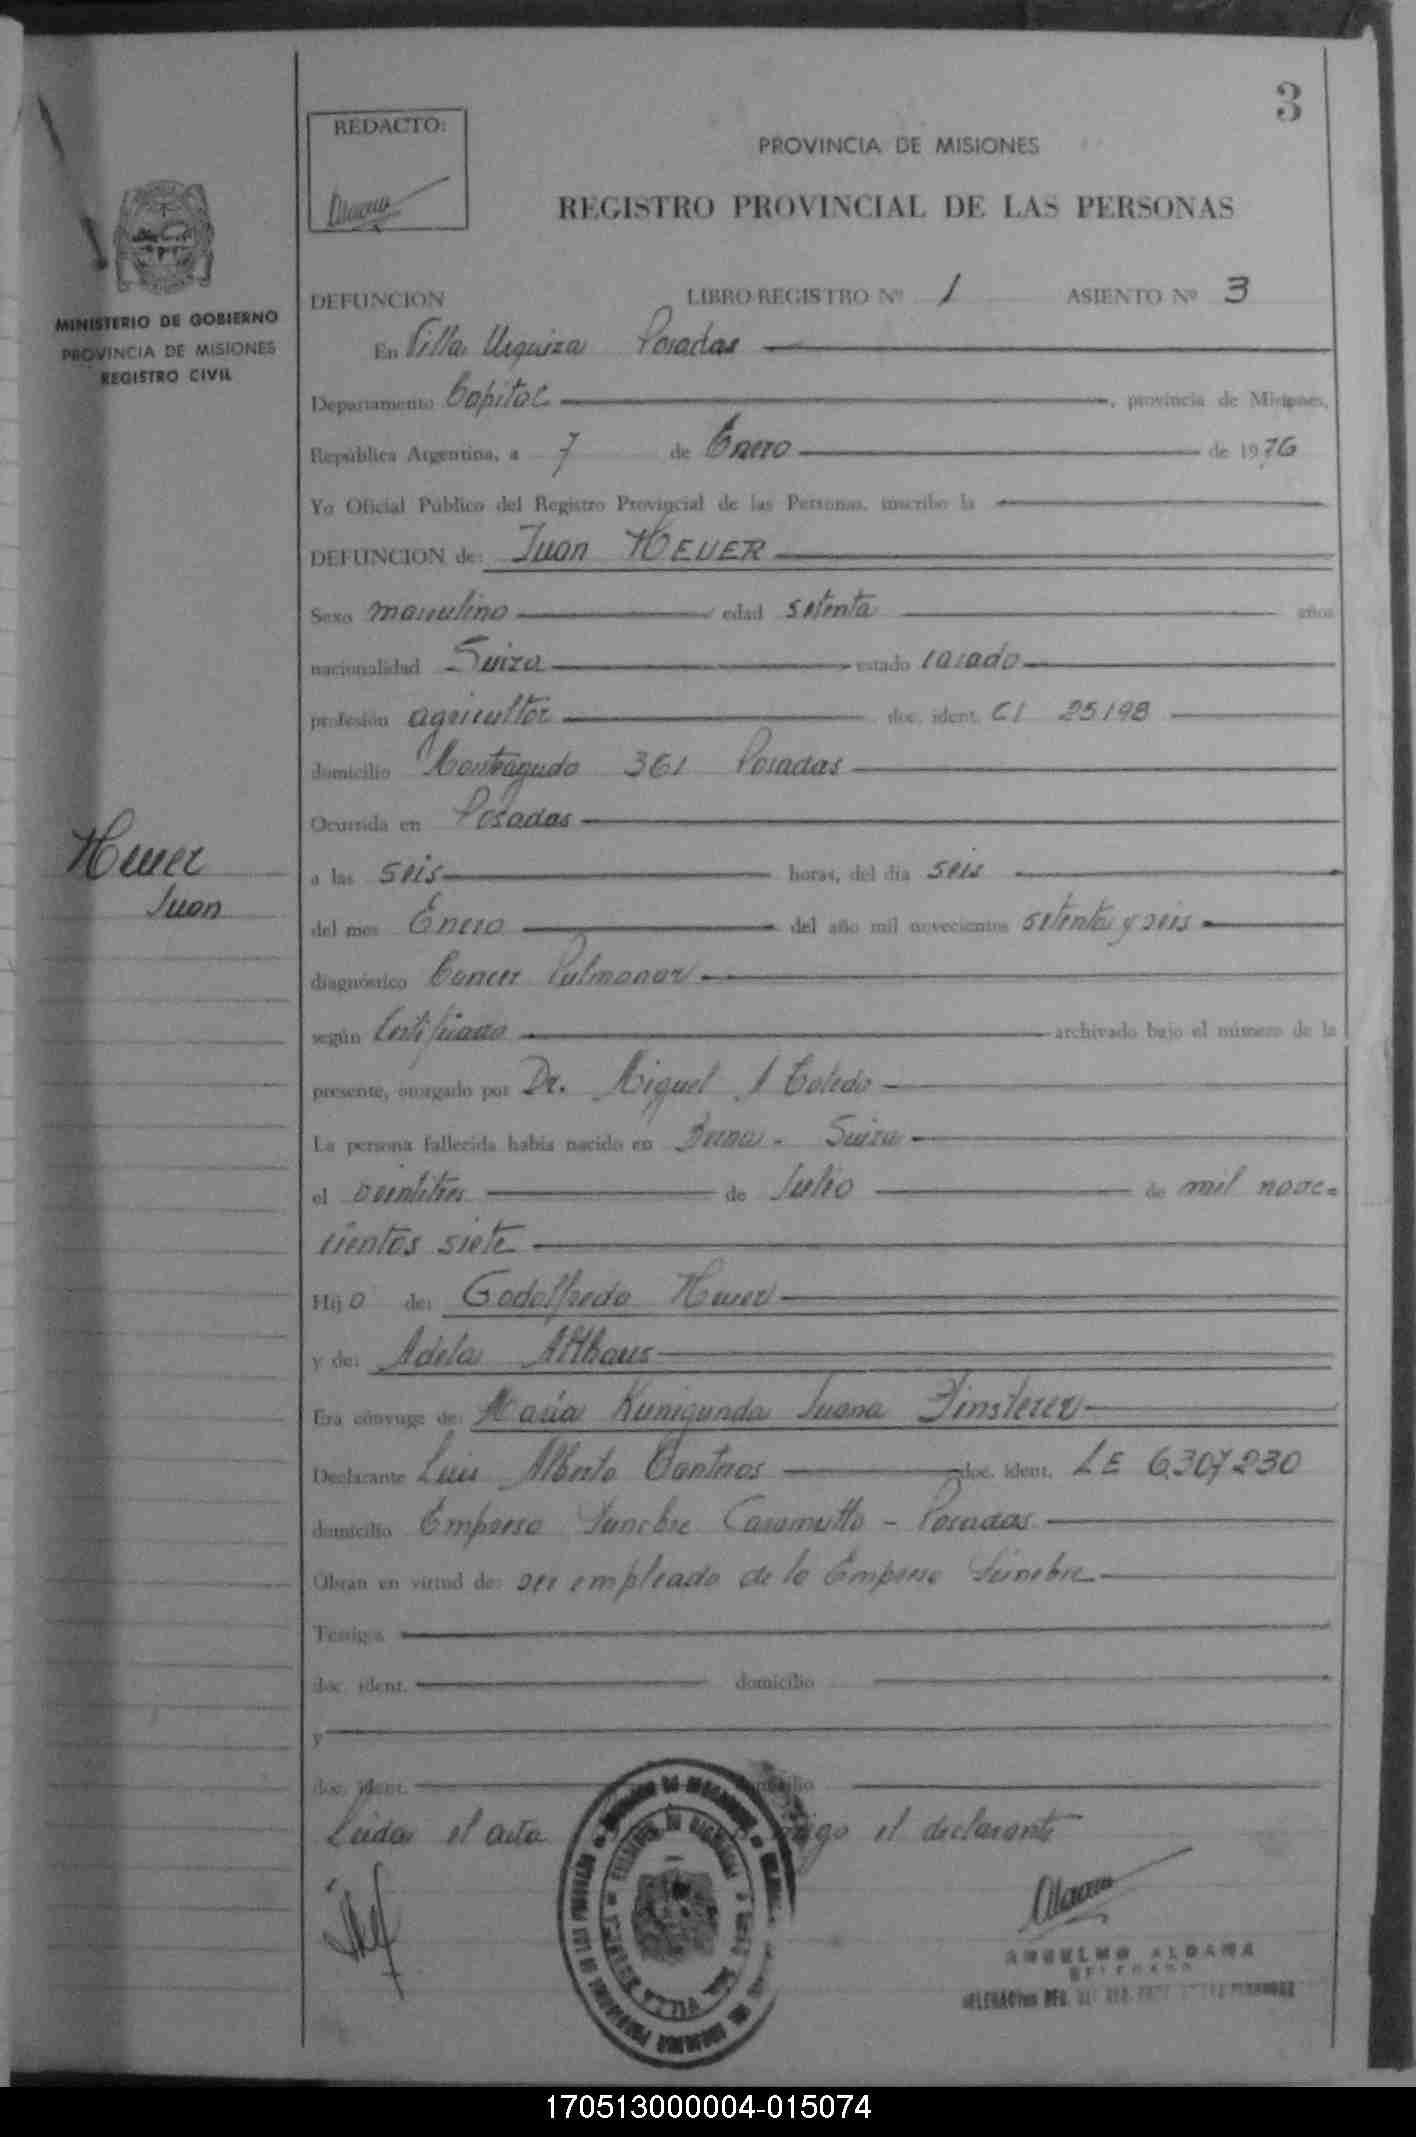 3
REDACTO:
PROVINCIA DE MISIONES
REGISTRO PROVINCIAL DE LAS PERSONAS
MINISTERIO DE GOBIERNO
PROVINCIA DE MISIONES
REGISTRO CIVIL
DEFUNCION LIBRO REGISTRO Nº 1 ASIENTO Nº 3
En Villa Urquiza Posadas
Departamento Capital, provincia de Misiones,
República Argentina, a 7 de Enero de 1976
Yo Oficial Público del Registro Provincial de las Personas, inscribo la
DEFUNCION de: Juan HEUER
Sexo masculino edad setenta años
nacionalidad Suiza estado casado
profesión agricultor doc. ident. CI 25198
domicilio Monteagudo 361 Posadas
Ocurrida en Posadas
Heuer
Juan
a las seis horas, del día seis
del mes Enero del año mil novecientos setenta y seis
diagnóstico Cancer Pulmonar
según Certificado archivado bajo el número de la
presente, otorgado por Dr. Miguel A Toledo
La persona fallecida había nacido en Berna - Suiza
el veintitres de Julio de mil nove=
cientos siete
Hijo de: Godolfredo Heuer
y de: Adela Althaus
Era cónyuge de: María Kunigunda Juana Finsterer
Declarante Luis Alberto Conteros doc. ident. LE 6.307.230
domicilio Empresa Funebre Caramutto - Posadas
Obran en virtud de: ser empleado de la Empresa Fúnebre
Testigos
doc. ident. domicilio
y
doc. ident. domicilio
Leida el acta el declarante
ANSELMO ALDANA
DELEGADO
170513000004-015074